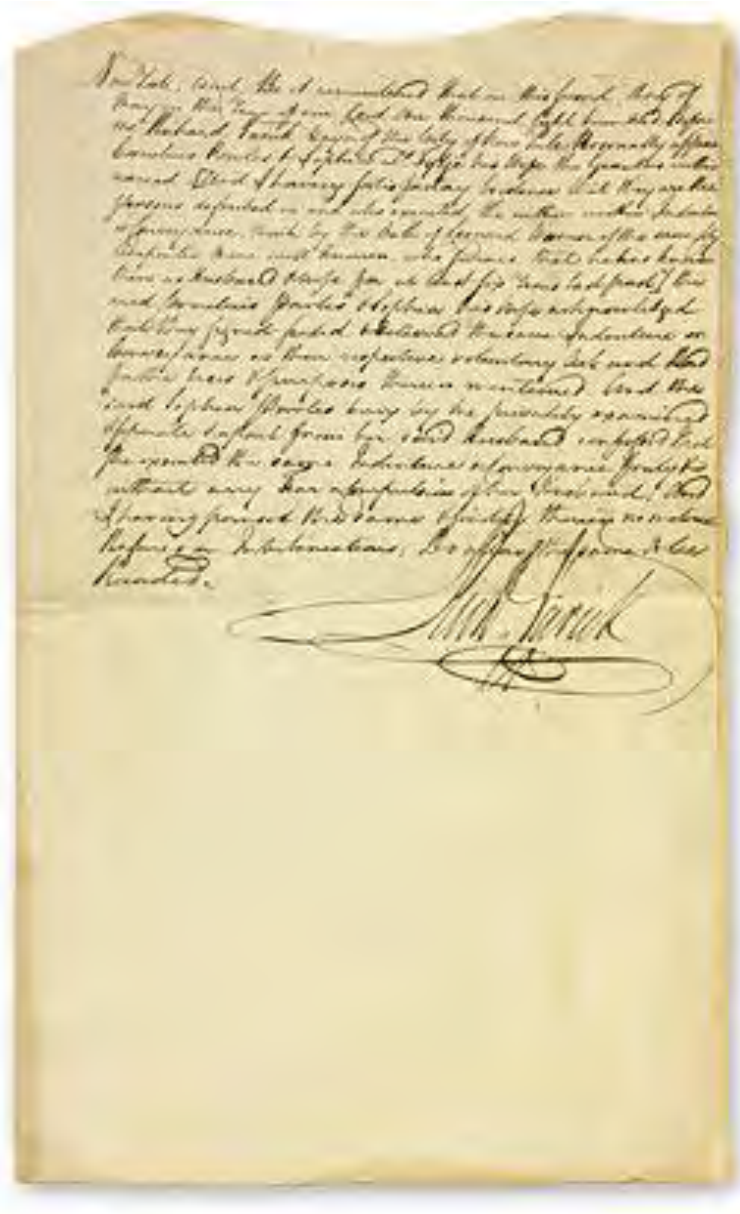 New York, Be it remembered that on this second day of
May in the Year of our Lord one thousand eight hundred before
me Richard Varick Mayor of the City of New York Personally appeared
his Wife the grantors within
named & having satisfactory evidence that they are the
persons described in and who executed the within written Indenture
of conveyance by the Oath of Leonard Warner of the same City
Carpenter to me well known who that he has known
them as Husband & Wife for at least six Years last past] the
said Cornelius & Sophia his wife acknowledged
that they signed sealed & delivered the same Indenture or
Conveyance as their respective voluntary Act and Deed
for the Uses & purposes therein mentioned And the
said Sophia being by me privately examined
separate & apart from her said Husband confessed that
she executed the same Indenture of conveyance freely
without any fear or compulsion of her Husband: And
I having perused the same & finding therein no material
Erasures or Interlineations, Do allow the same to be
Recorded.
Rich. Varick